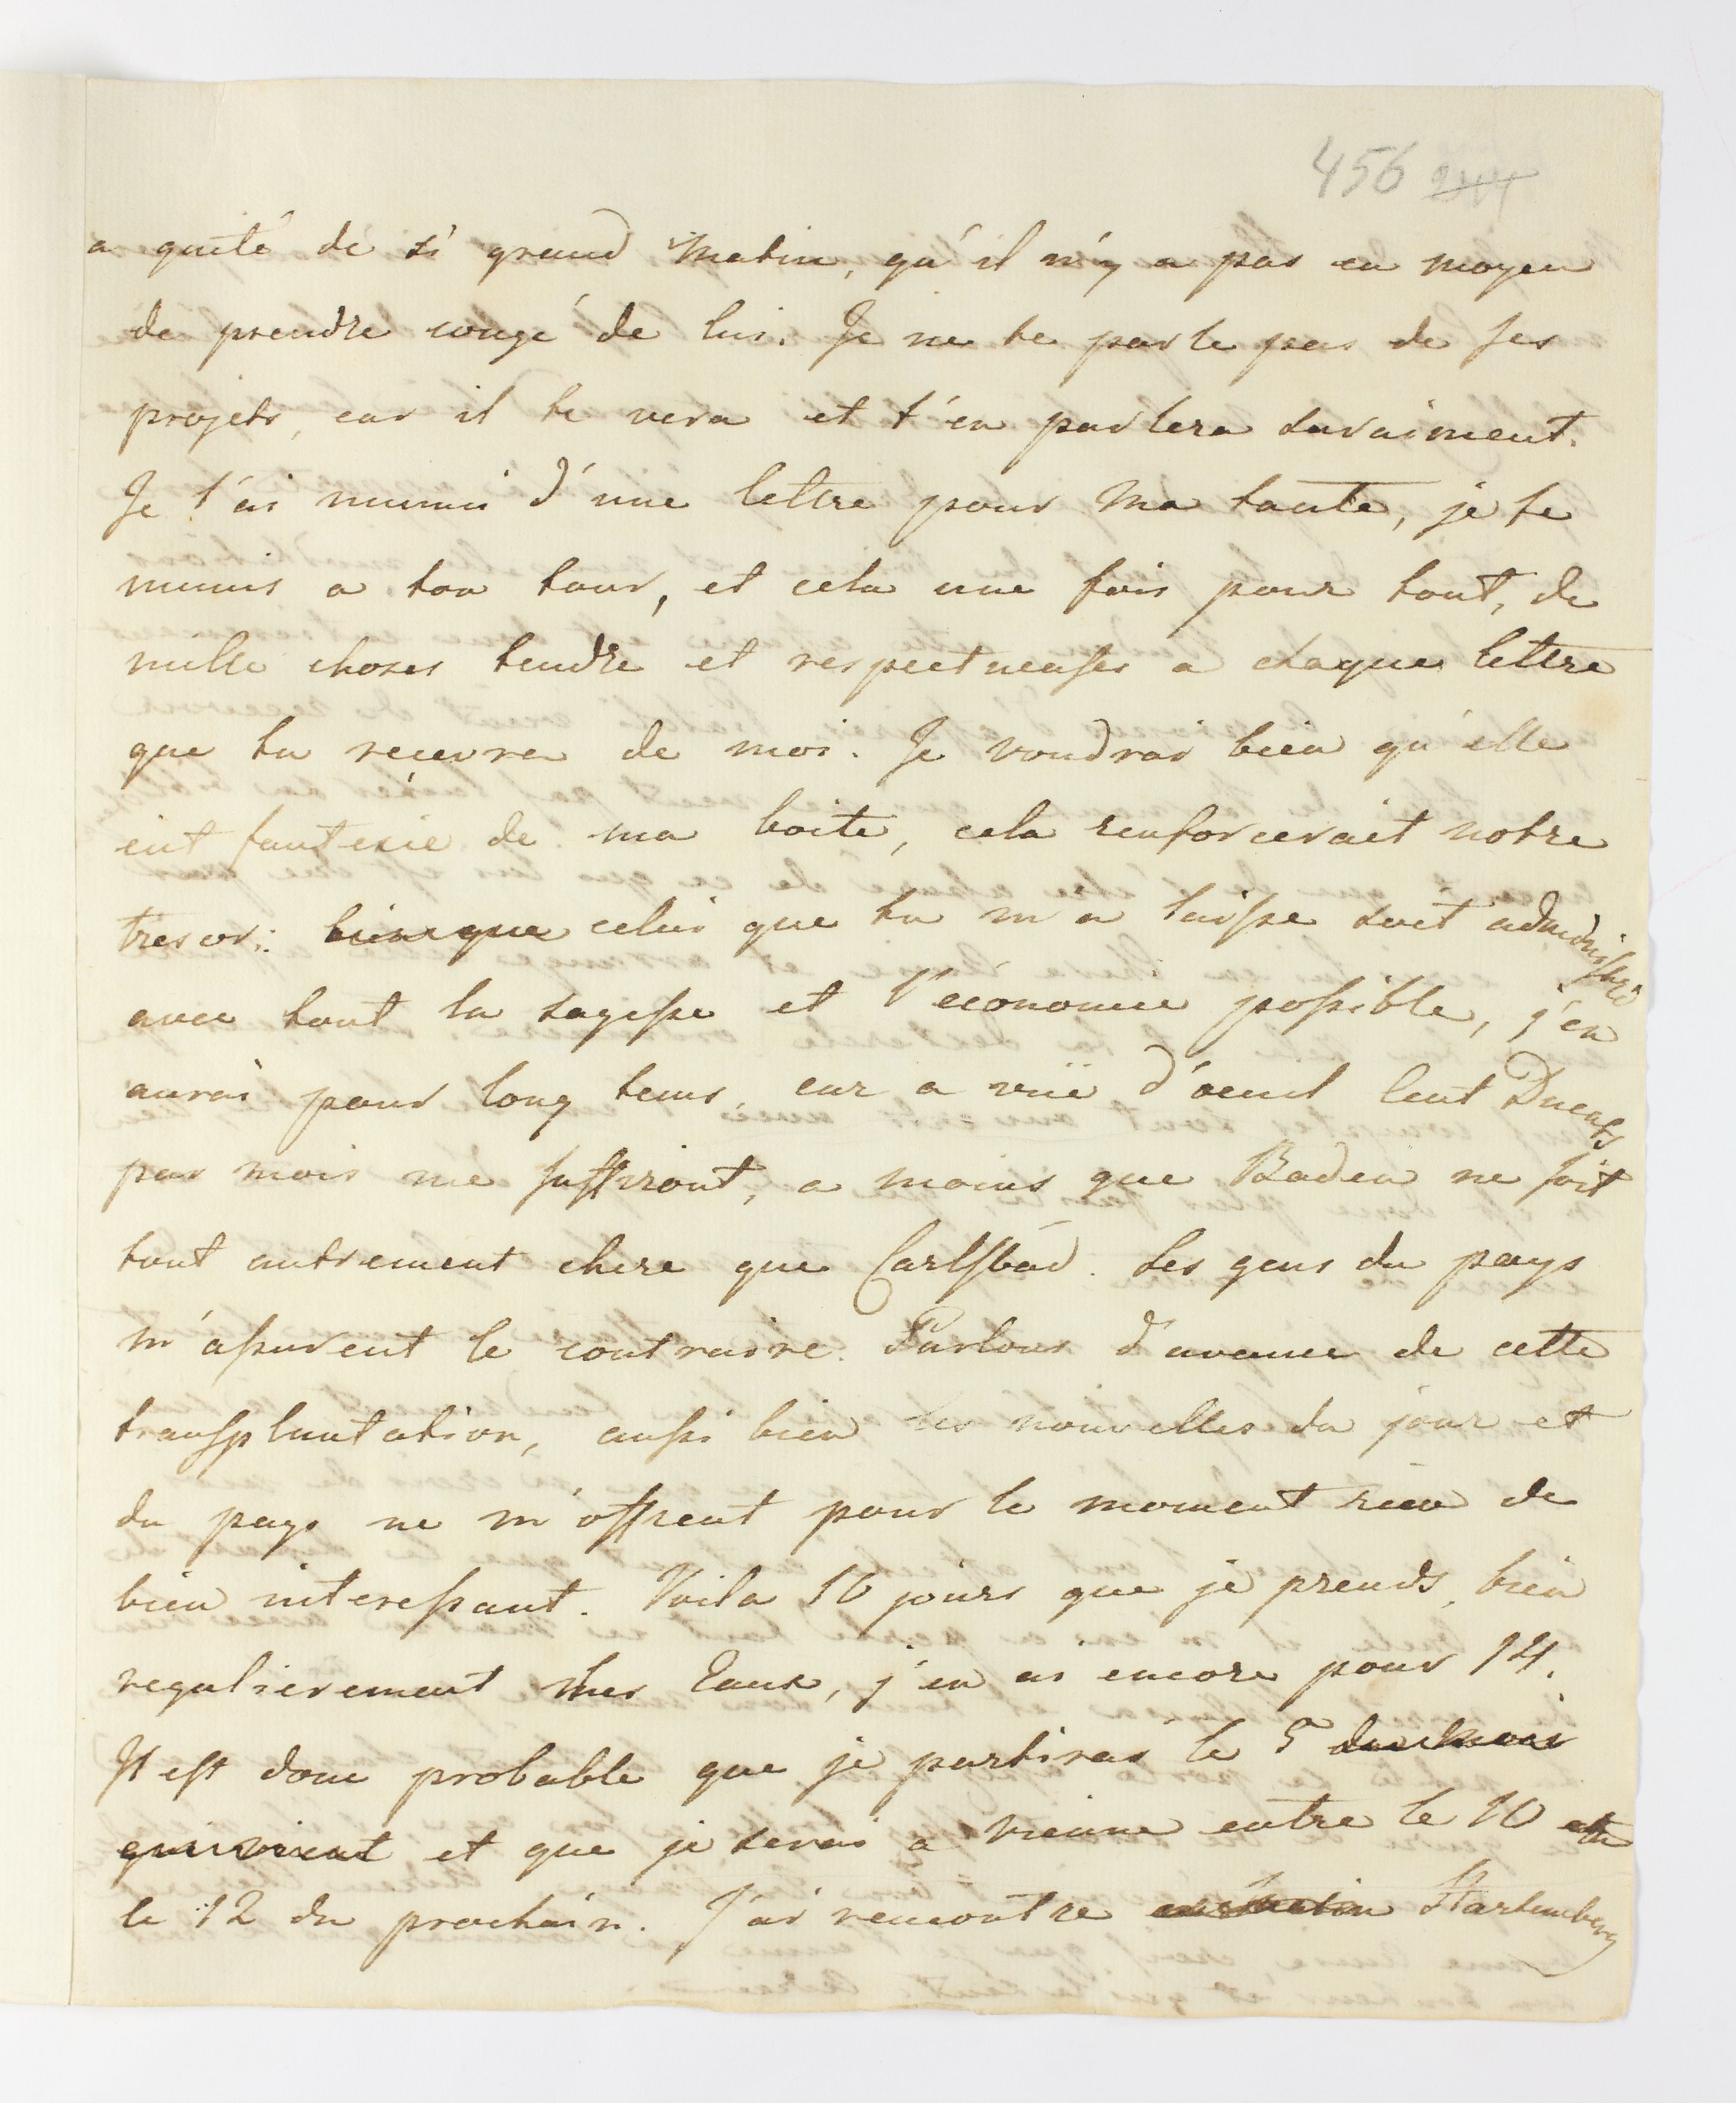 456
a quité de si grand Matin, qu'il n'y a pas eu moyen
de prendre congé de lui. Je ne te parle pas de ses
projets, car il te vera et t'en parlera suraiment.
Je l'ai muni d'une lettre pour Ma tante, je te
munis a ton tour, et cela une fois pour tout, de
mille choses tendre et respectueuses a chaque lettre
que tu recevra de moi. Je voudrai bien qu'elle
eut fantesie de ma boite, cela renforcerait notre
tresor; bienque celui que tu m'a laisse soit administré
avec tout la sagesse et l'economie possible, j'en
aurai pour long tems, car a vüe d'oeuil Cent Ducats
par mois me suffiront, a moins que Baden ne soit
tout autrement chere que Carlsbad. Les gens du pays
m'assurent le contraire. Parlons d'avance de cette
transplantation, aussi bien les nouvelles du jour et
du pays ne m'offrent pour le moment rien de
bien interessant. Voila 10 jours que je prends, bien
regulierement Mes Eaux, j'en ai encore pour 14.
Il est donc probable que je partirai le 5 du Mois
qui vient et que je serai a Vienne entre le 10 et
le 12 du prochain. J'ai rencontre Starhemberg